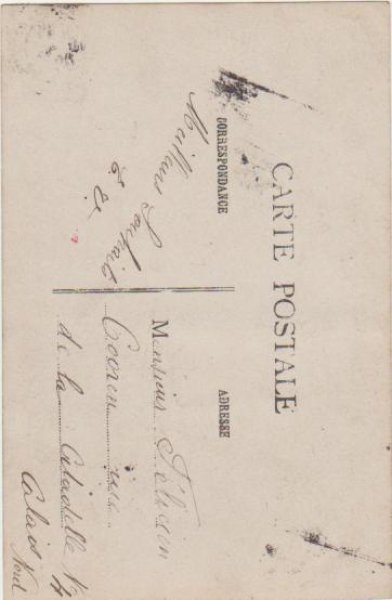 CARTE POSTALE
CORRESPONDANCE
ADRESSE
Meilleurs Souhaits
Monsieur Félicien
rue
de la Citadelle N
4
Calais Nord